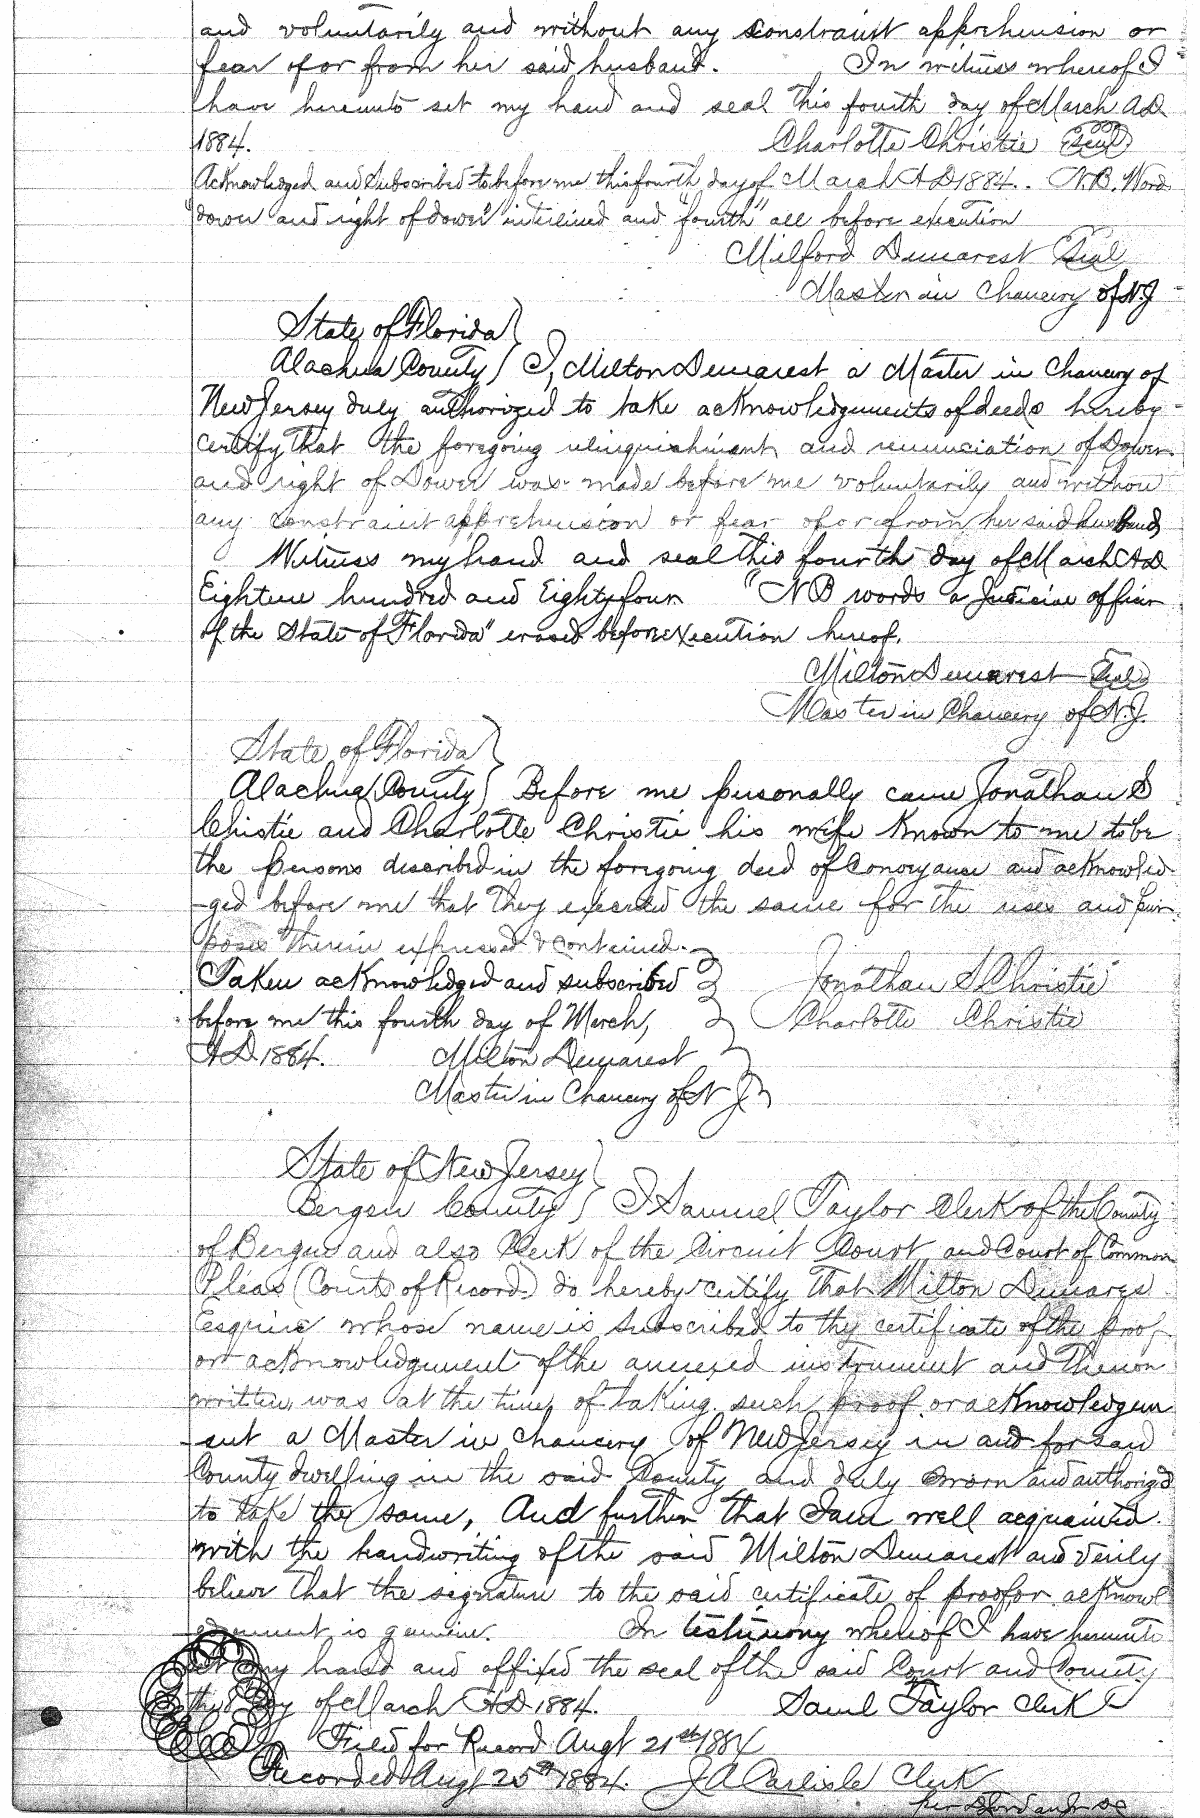 and voluntarily and without any constraint apprehension or
fear of or from her said husband. In witness whereof I
have hereunto set my hand and seal this fourth day of March A.D.
1884. Charlotte Christie Seal
Acknowledged and subscribed to before me this fourth day of March A D 1884. N.B. Word
"dower and right of dower" interlined and "fourth" all before execution
Milford Demarest Seal
Master in Chancery of N.J
State of Florida
Alachua County I, Milton Demarest a Master in Chancery of
New Jersey duly authorized to take acknowledgements of deeds hereby
certify that the foregoing relinquishment and renunciation of Dower
and right of Dower was made before me voluntarily and withou
any constraint apprehension or fear of or from her said husband,
Witness my hand and seal this fourth day of March A D
Eighteen hundred and Eighty four "NB words a Judicial officer
of the State of Florida" erased before execution hereof.
Milton Demarest Seal
Master in Chancery of N.J.
State of Florida
Alachua County Before me personally came Jonathan S
Christie and Charlotte Christie his wife known to me to be
the persons described in the foregoing deed of Conveyance and acknowled
-ged before me that they executed the same for the uses and pur
poses therein expressed & contained.
Taken acknowledged and subscribed Jonathan S Christie
before me this fourth day of March, Charlotte Christie
A D 1884. Milton Demarest
Master in Chancery of N J
State of New Jersey
Bergen County I Samuel Taylor Clerk of the County
of Bergen and also Clerk of the Circuit Court and Court of Common
Pleas (Courts of Record) do hereby certify that Milton Demares
Esquire whose name is subscribed to the certificate of the proof
or acknowledgement of the annexed instrument and thereon
written, was at the time of taking such proof or acknowledgem
-ent a Master in Chancery of New Jersey in and for said
County dwelling in the said County and duly sworn and authorized
to take the same, And further that I am well acquainted
with the handwriting of the said Milton Demarest and verily
believe that the signature to the said certificate of proof or acknowl
-edgement is genuine. In testimony whereof I have hereunto
set my hand and affixed the seal of the said Court and County
day of March A D 1884. Saml Taylor Clerk
Filed for Record Augt 21st 1884
Recorded Augt 25th 1884. J A Carlisle Clerk
per